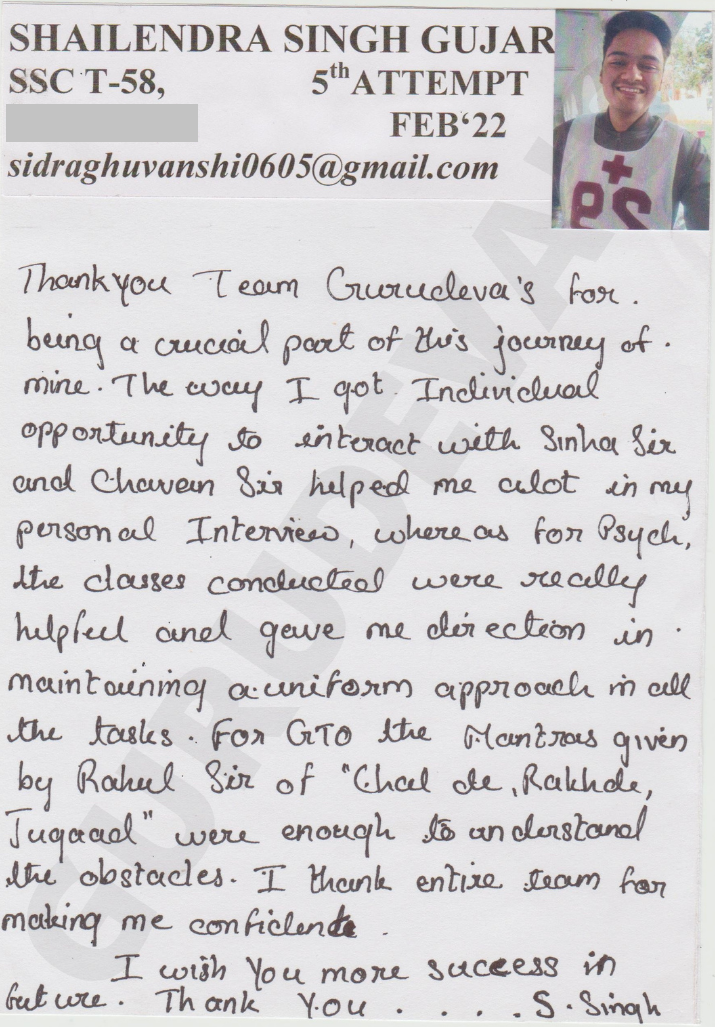 SHAILENDRA SINGH GUJAR
SSC T-58, 5th ATTEMPT
FEB‘22
sidraghuvanshi0605@gmail.com
Thankyou Team Gurudeva's for.
being a crucial part of this journey of.
mine. The way I got Individual
opportunity to interact with Sinha Sir
and Chavan Sir helped me alot in my
personal Interview, where as for Psych,
the classes conducted were really
helpful and gave me direction in
maintaining a uniform approach in all
the tasks. For GTO the Mantras given
by Rahul Sir of "Chal de, Rakhde,
Jugaad" were enough to understand
the obstacles. I thank entire team for
making me confident.
I wish You more success in
future. Thank You . . . . S. Singh
GURUDEVAS